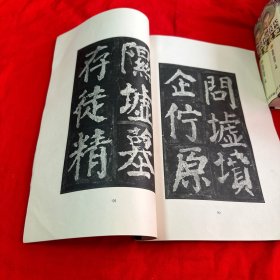 問墟墳
企佇原
隰墟墓
存徒精